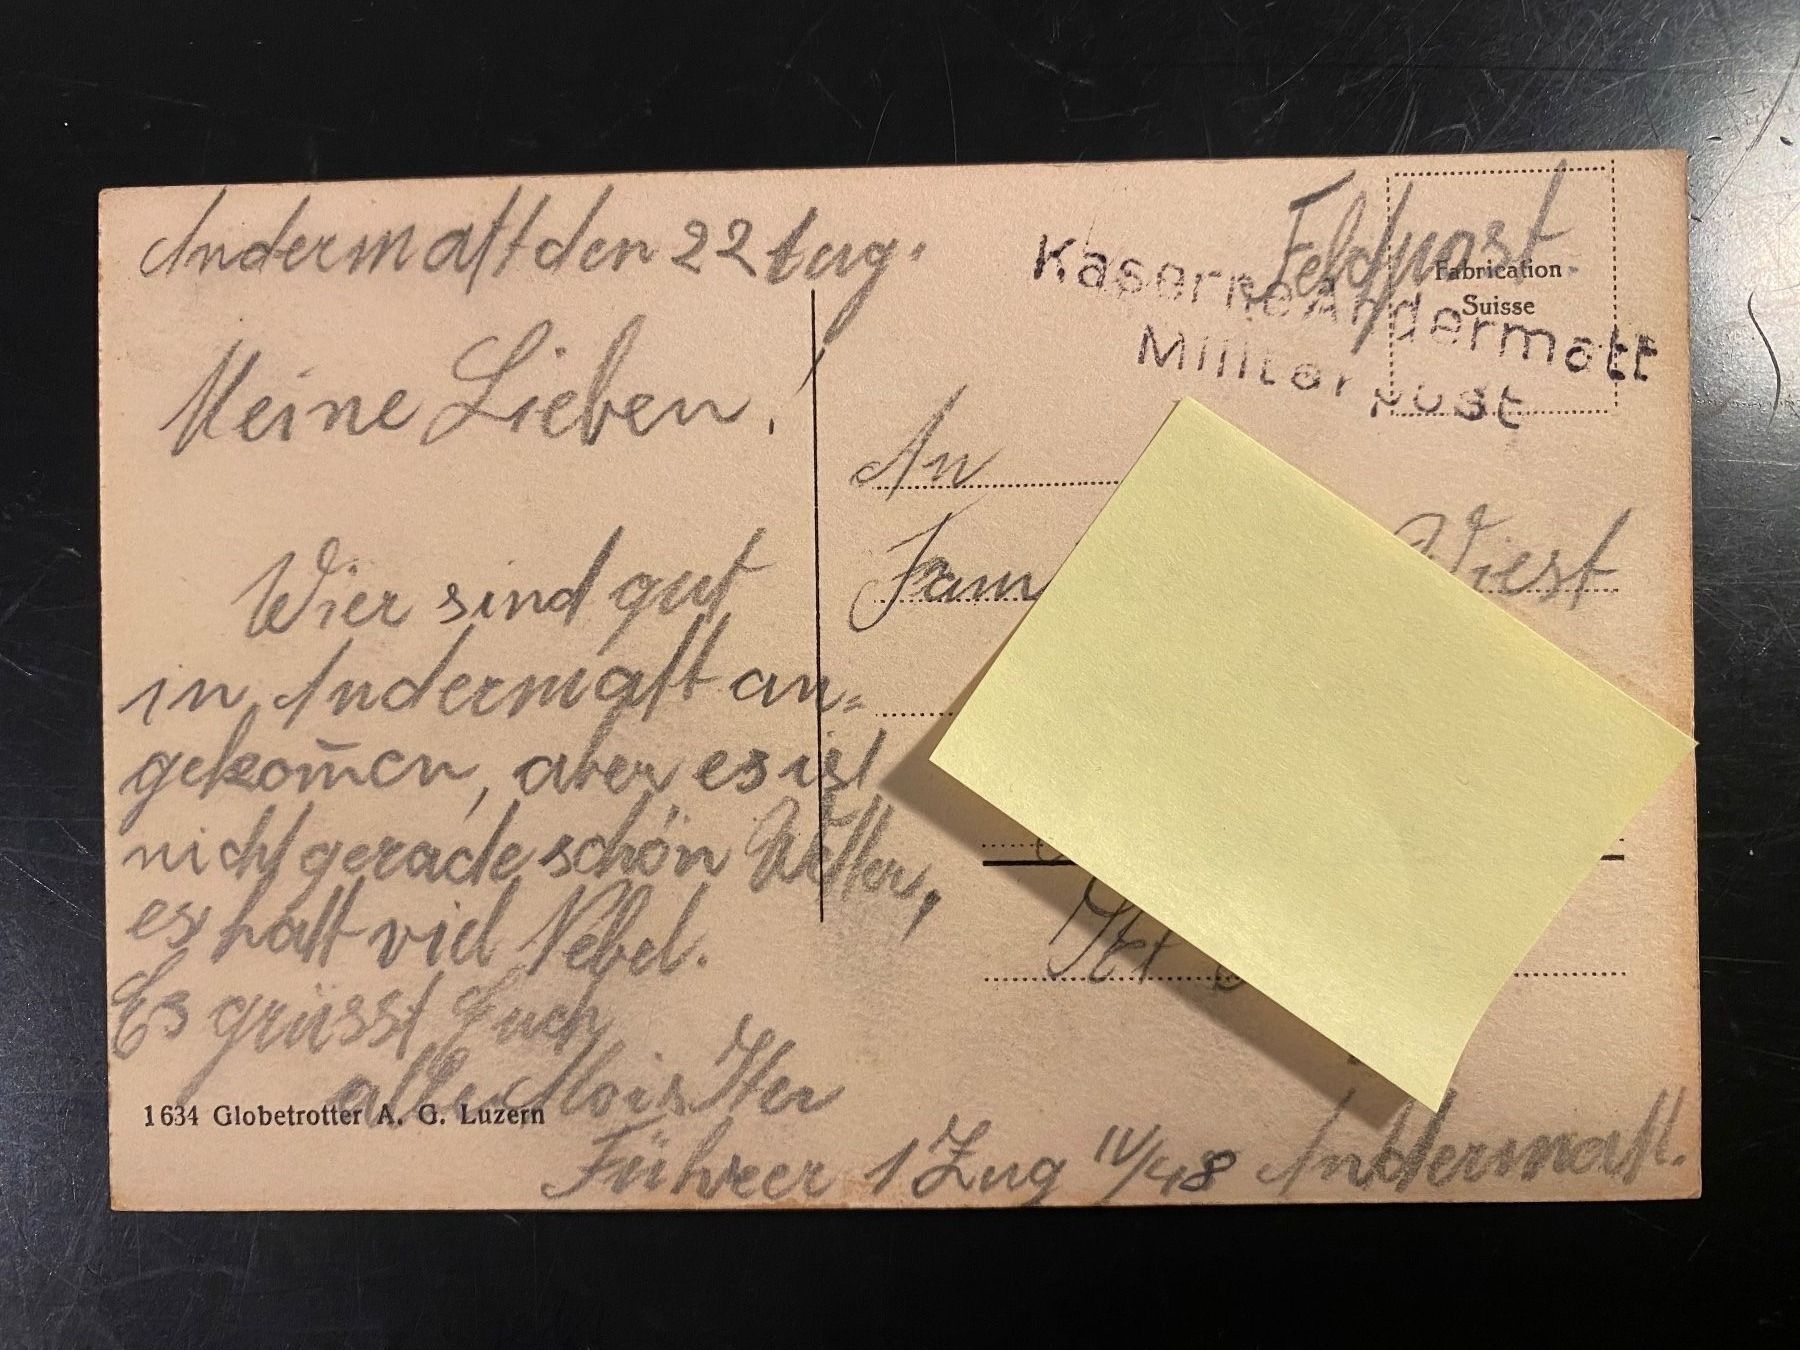 Andermatt den 22 Aug.
Meine Lieben!
Wier sind gut
in Andermatt an=
gekom̄en, aber es ist
nicht gerade schön Wetter,
es hatt viel Nebel.
Es grüsst Euch
alle Alois Iten
Führer 1 Zug IV/48 Andermatt.
1634 Globetrotter A. G. Luzern
Feldpost.
Fabrication
Suisse
Kaserne Andermatt
Militärpost
An
Fam
Wiest